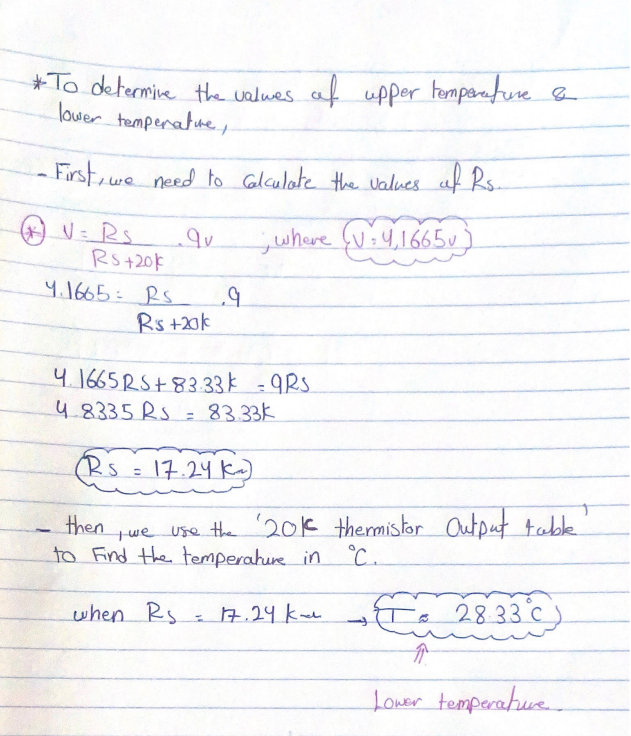 *To determine the values of upper temperature &
lower temperature,
- First, we need to Calculate the values of Rs.
* V = Rs / Rs+20k .9v ; where V = 4,1665v
4.1665 = Rs / Rs+20k .9
4.1665RS + 83.33k = 9RS
4.8335 RS = 83.33k
Rs = 17.24 KΩ
- then, we use the '20k thermistor Output table'
to Find the temperature in °C.
when Rs = 17.24 kΩ → T ≈ 28.33°C
↑
Lower temperature.